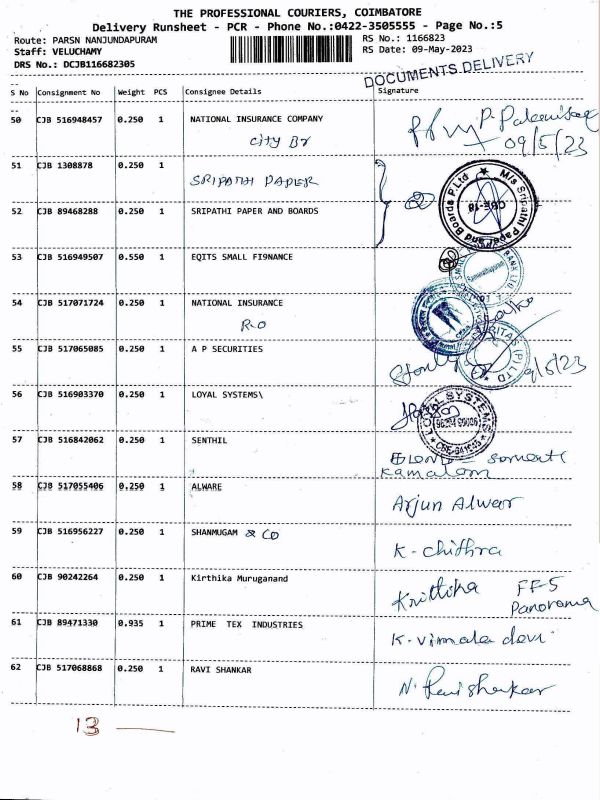 THE PROFESSIONAL COURIERS, COIMBATORE
Delivery Runsheet - PCR - Phone No.:0422-3505555 - Page No.:5
Route: PARSN NANJUNDAPURAM RS No.: 1166823
Staff: VELUCHAMY RS Date: 09-May-2023
DRS No.: DCJB116682305
DOCUMENTS DELIVERY
S No Consignment No Weight PCS Consignee Details Signature
50 CJB 516948457 0.250 1 NATIONAL INSURANCE COMPANY
City Br 09/5/23
51 CJB 1308878 0.250 1
SRIPATHI PAPER
M/s Sripathi Paper and Boards P.Ltd
CBE-18
52 CJB 89468288 0.250 1 SRIPATHI PAPER AND BOARDS
53 CJB 516949507 0.550 1 EQITS SMALL FI9NANCE
54 CJB 517071724 0.250 1 NATIONAL INSURANCE
R.O
55 CJB 517065085 0.250 1 A P SECURITIES
9/5/23
56 CJB 516903370 0.250 1 LOYAL SYSTEMS\
LOYAL SYSTEMS
57 CJB 516842062 0.250 1 SENTHIL
Kamalam
58 CJB 517055406 0.250 1 ALWARE
Arjun Alwar
59 CJB 516956227 0.250 1 SHANMUGAM & CO
K-chithra
60 CJB 90242264 0.250 1 Kirthika Muruganand
Krithika FF-5
Panorama
61 CJB 89471330 0.935 1 PRIME TEX INDUSTRIES
K-vimala devi
62 CJB 517068868 0.250 1 RAVI SHANKAR
N. Ravishankar
13